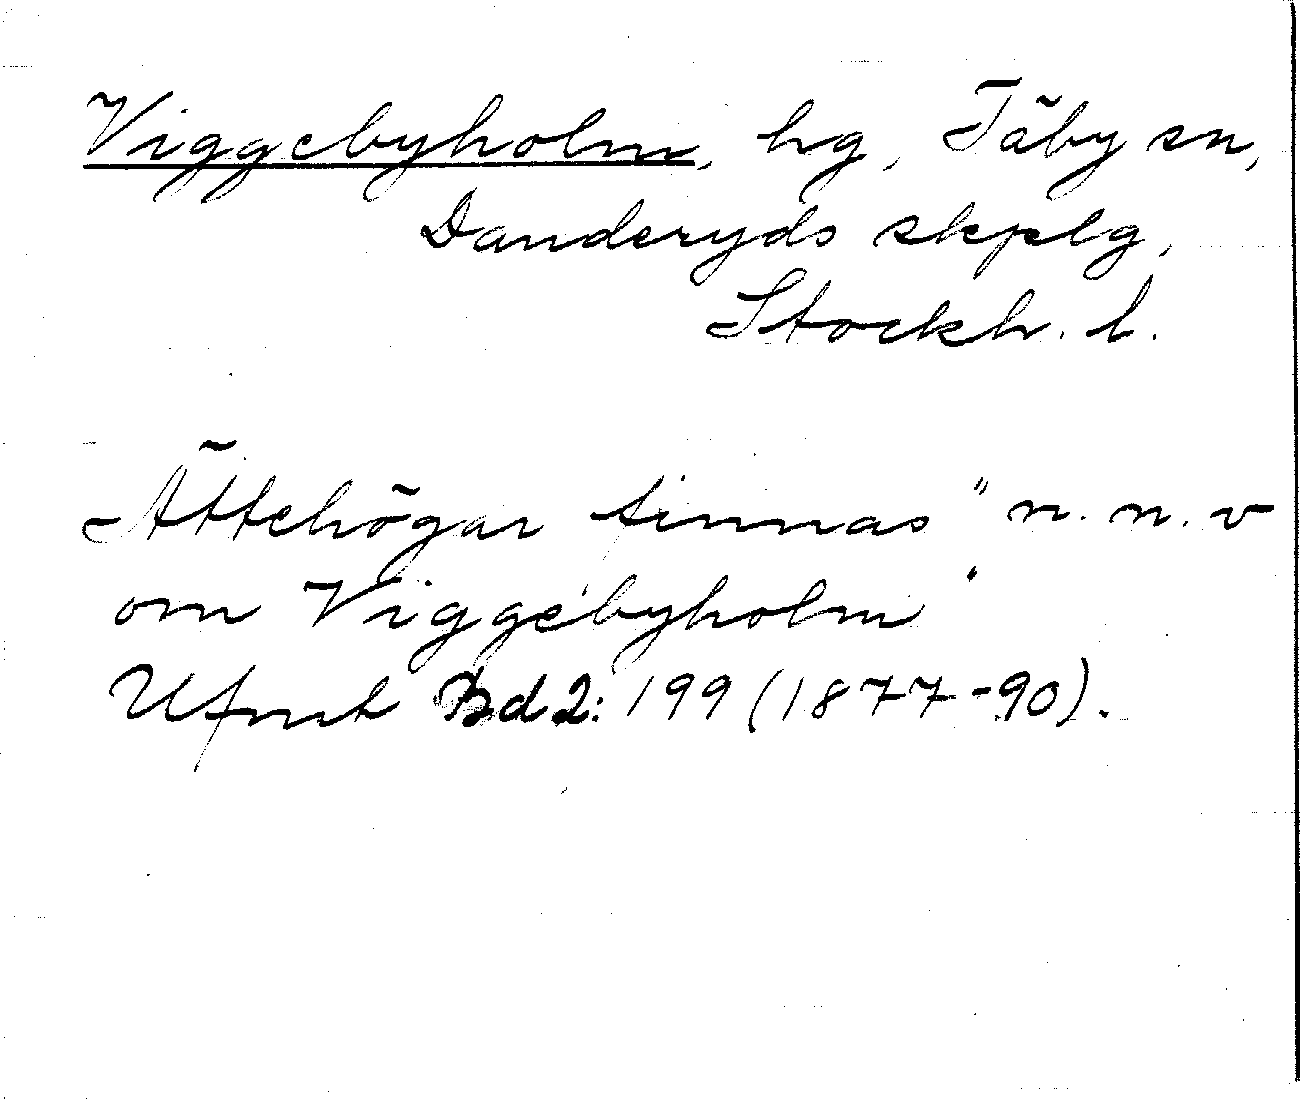 Viggebyholm, hg, Täby sn,
Danderyds skplg,
Stockh. l.
Ättehögar finnas "n. n. v
om Viggebyholm"
Ufmt Bd 2: 199 (1877-90).